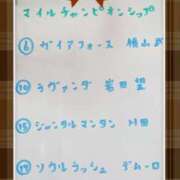 マイルチャンピオンシップ
⑥ ガイアフォース 横山武
⑩ ラヴァンダ 岩田望
⑮ ジャンタルマンタル 川田
⑰ ソウルラッシュ デムーロ